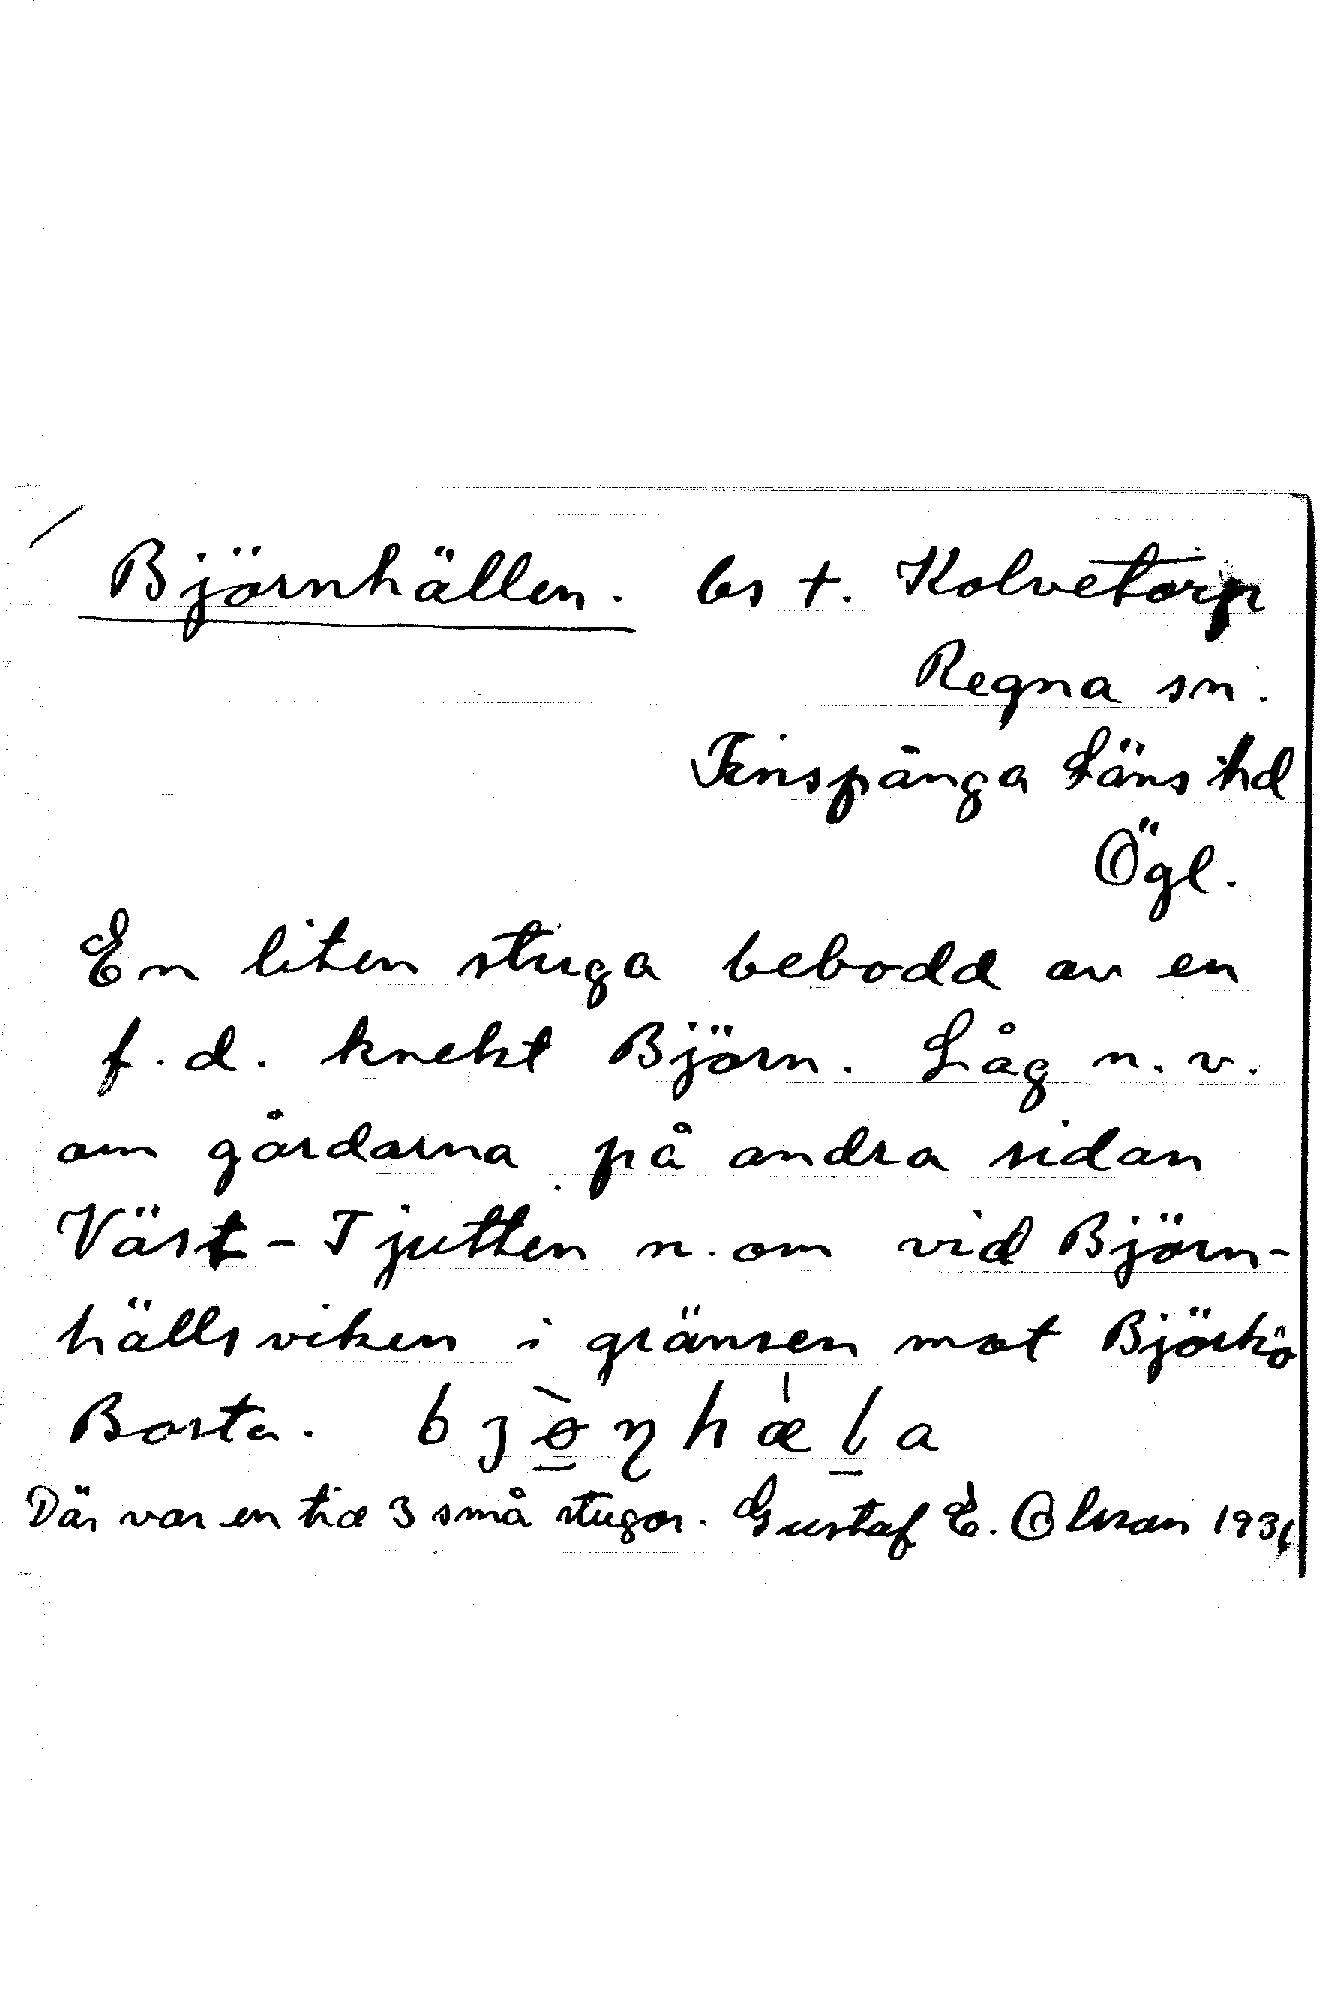 Björnhällen. bs t. Kolvetorp
Regna sn.
Finspånga Läns hd
Ögl.
En liten stuga bebodd av en
f.d. knekt Björn. Låg n.v.
om gårdarna på andra sidan
Väst-Tjutten n. om vid Björn-
hällsviken i gränsen mot Björkö
Borta. bjɵ̀ṇhæ̍la
Där var en tid 3 små stugor. Gustaf E. Olsson 193